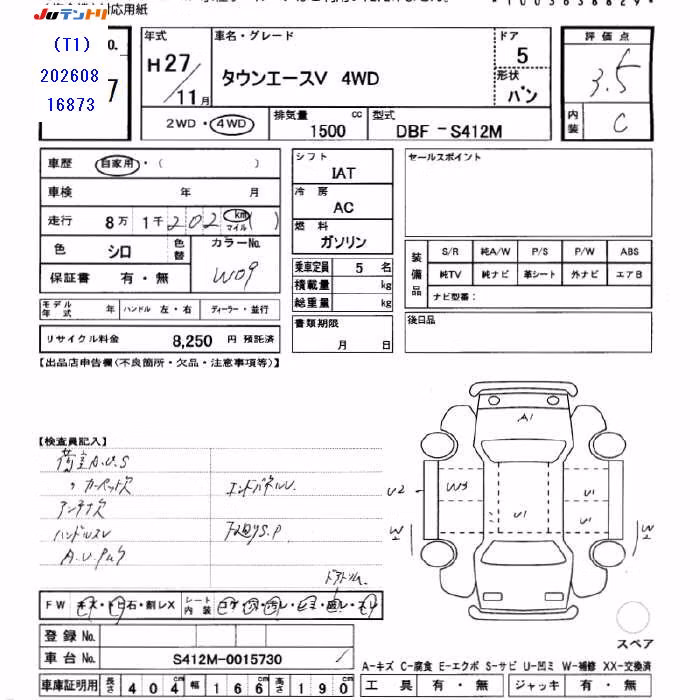 対応用紙
Juテントリ
(T1)
202608
16873
No.
7
年式
H27/11月
車名・グレード
タウンエースV 4WD
ドア
5
形状
バン
2WD・4WD
排気量
1500 cc
型式
DBF-S412M
評価点
3.5
内装
C
車歴 自家用・( )
車検 年 月
走行 8万 1千 202 km マイル ( )
色 シロ 色替 カラーNo.
W09
保証書 有・無
モデル年式 年 ハンドル 左・右 ディーラー・並行
リサイクル料金 8,250 円 預託済
シフト
IAT
冷房
AC
燃料
ガソリン
乗車定員 5 名
積載量 kg
総重量 kg
書類期限
月 日
セールスポイント
装備品
S/R 純A/W P/S P/W ABS
純TV 純ナビ 革シート 外ナビ エアB
ナビ型番:
後日品
【出品店申告欄(不良箇所・欠品・注意事項等)】
【検査員記入】
荷室A.U.S
〃 カーペットス
アンテナ欠
ハンドルスレ
エンドパネルU
下廻りS.P
ドアトリム
A1
U2
W3
U1
U1
U1
W
W
FW キズ・トビ石・割レX
シート内装 コゲ・穴・汚レ・
スペア
登録No.
車台No. S412M-0015730
A-キズ C-腐食 E-エクボ S-サビ U-凹ミ W-補修 XX-交換済
車庫証明用 長さ 404 cm 幅 166 cm 高さ 190 cm
工具 有・無 ジャッキ 有・無